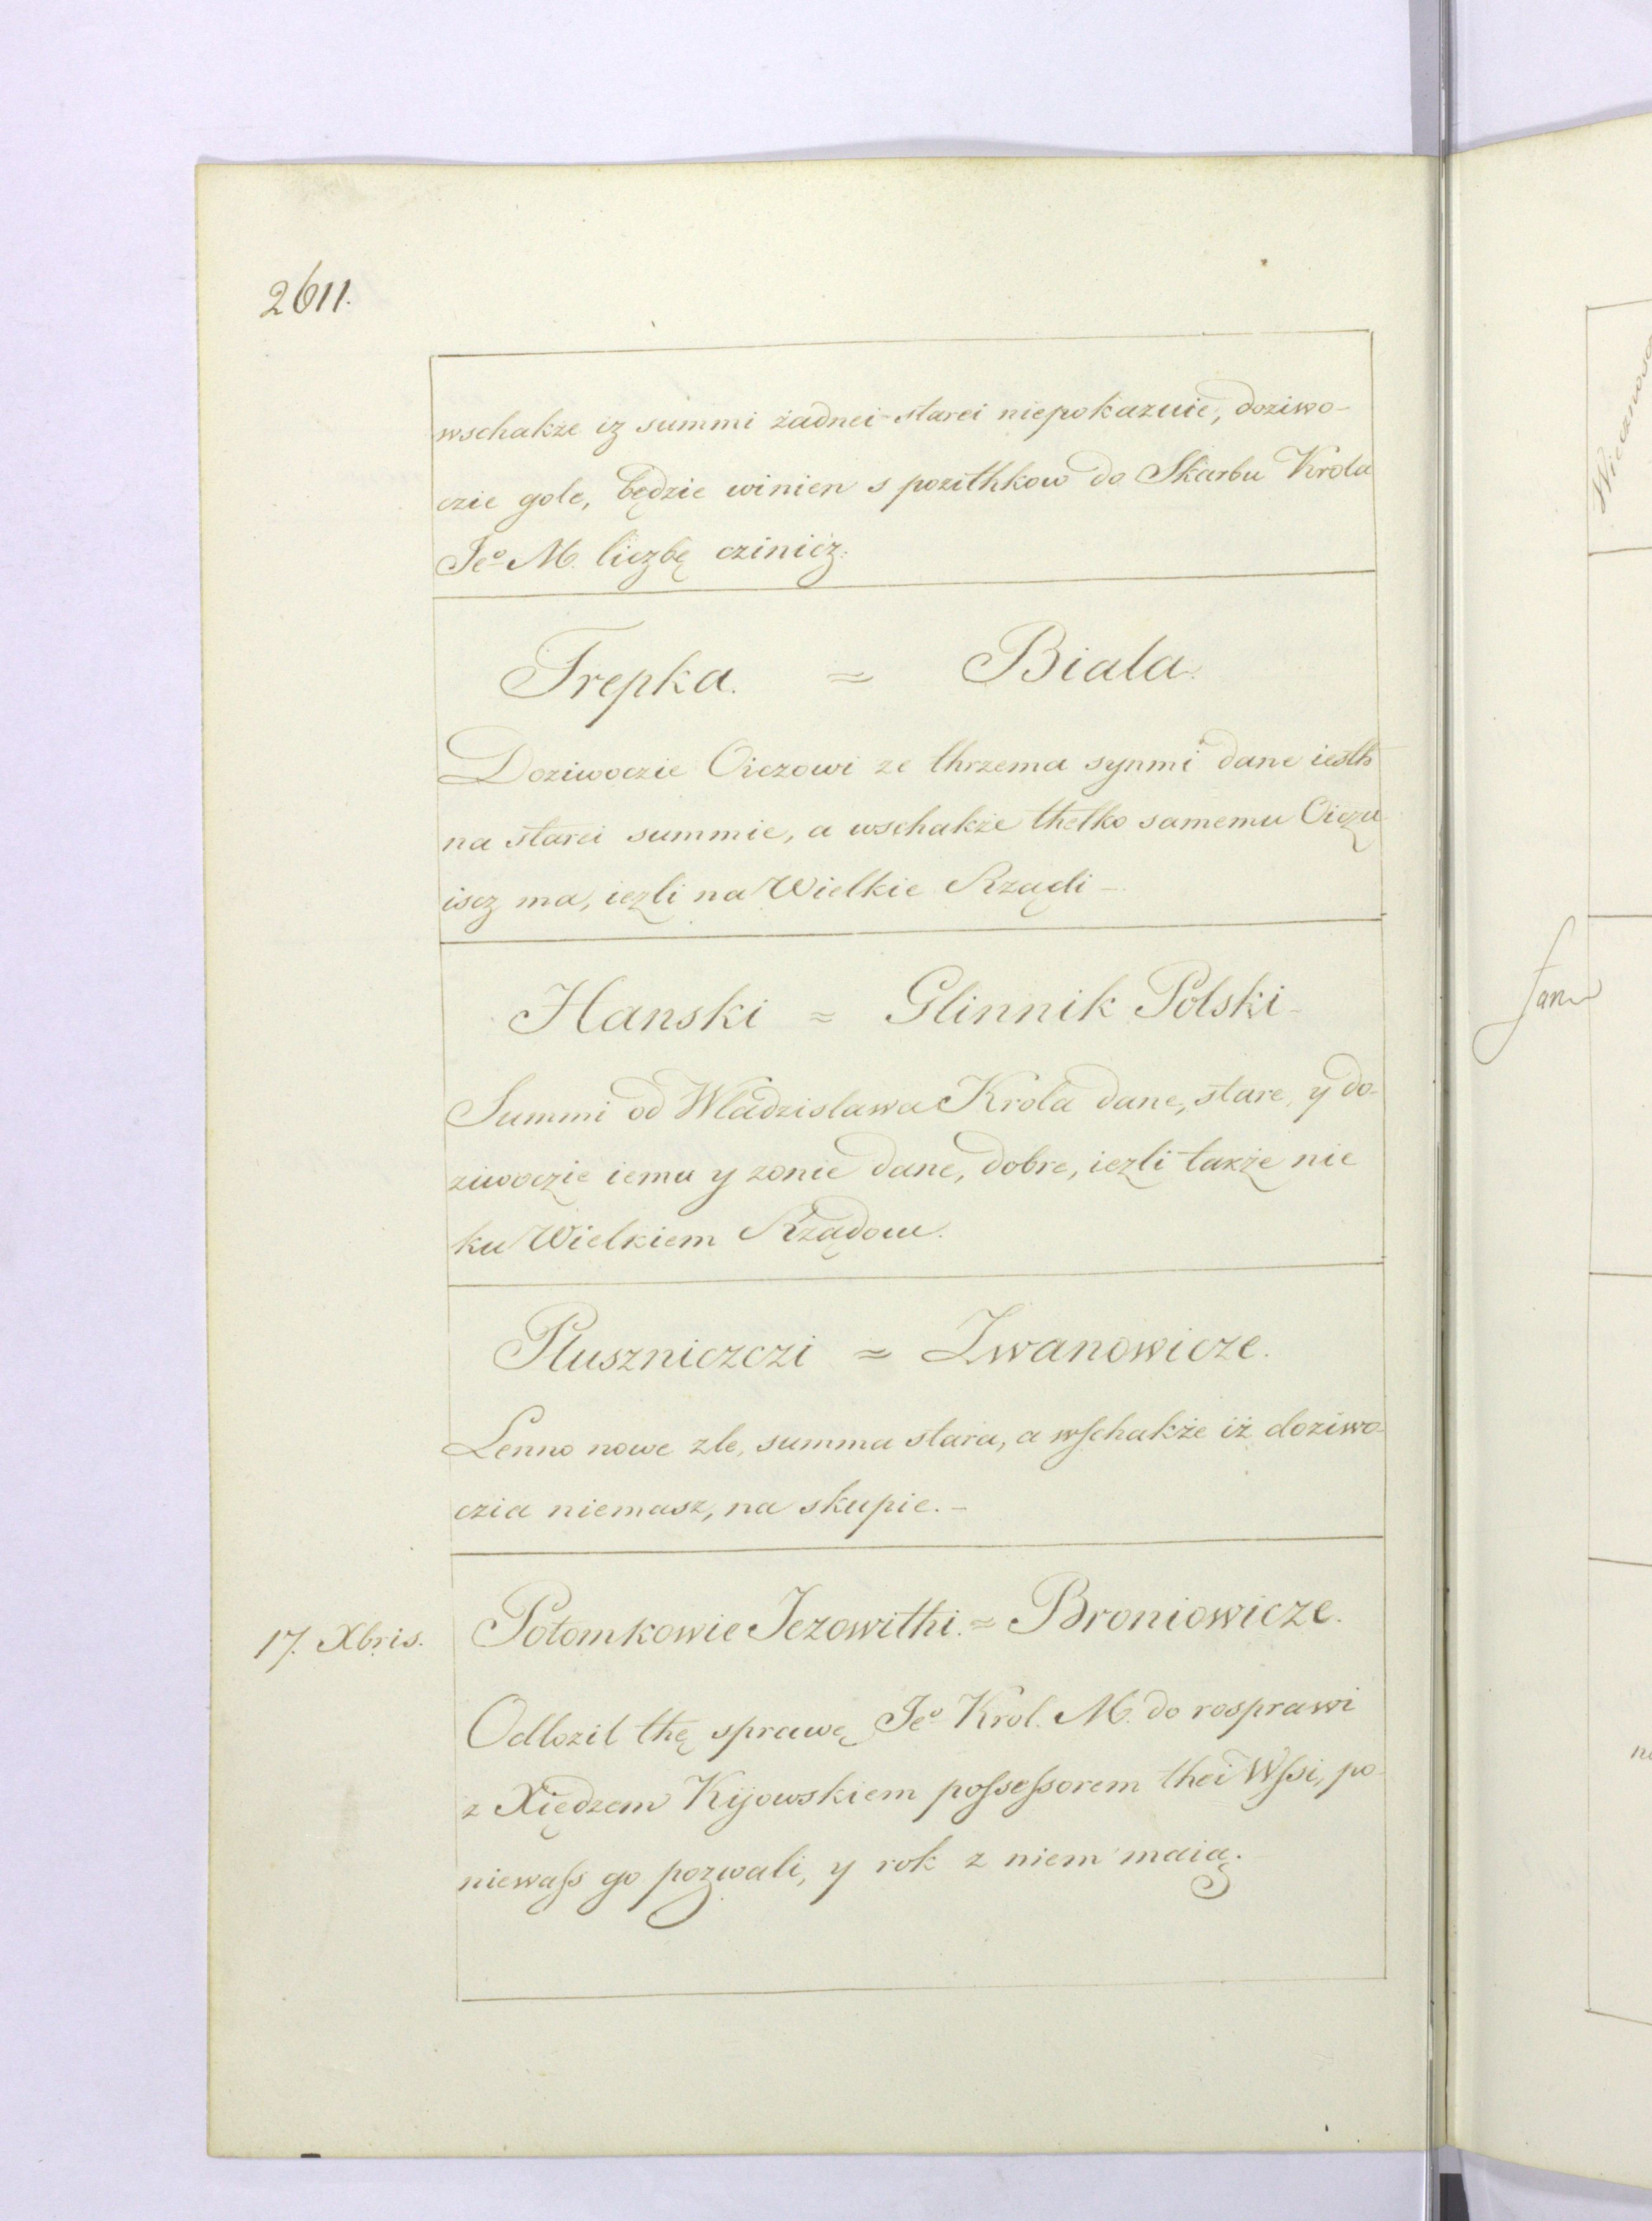 2611.
wschakże iz summi żadnei starei niepokazuie, doziwo-
czie gole, będzie winien s pozithkow do Skarbu Krola
Jeo M. liczbę czinicz.
Trepka. = Biala.
Doziwoczie Oiczowi ze thrzema synmi dane iesth
na starei summie, a wschakże thelko samemu Oiczu
iscz ma, iezli na Wielkie Rządi -
Hanski = Glinnik Polski -
Summi od Wladzislawa Krola dane, stare, y do-
ziwoczie iemu y zonie dane, dobre, iezli także nie
ku Wielkiem Rządom.
Pluszniczczi = Iwanowicze.
Lenno nowe zle, summa stara, a wſchakże iż doziwo-
czia niemasz, na skupie. -
17. Xbris.
Potomkowie Jezowithi. = Broniowicze.
Odlozil thę sprawę Jeo Krol. M. do rosprawi
z Xiędzem Kijowskiem poſseſsorem thei Wſsi, po
niewaſs go pozwali, y rok z niem maią.